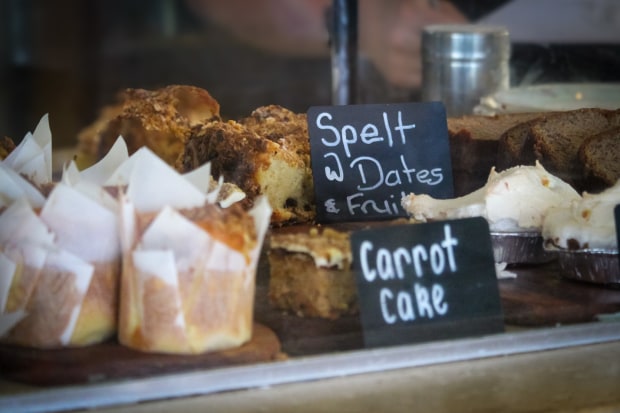 Spelt
W Dates
& Frui
Carrot
cake